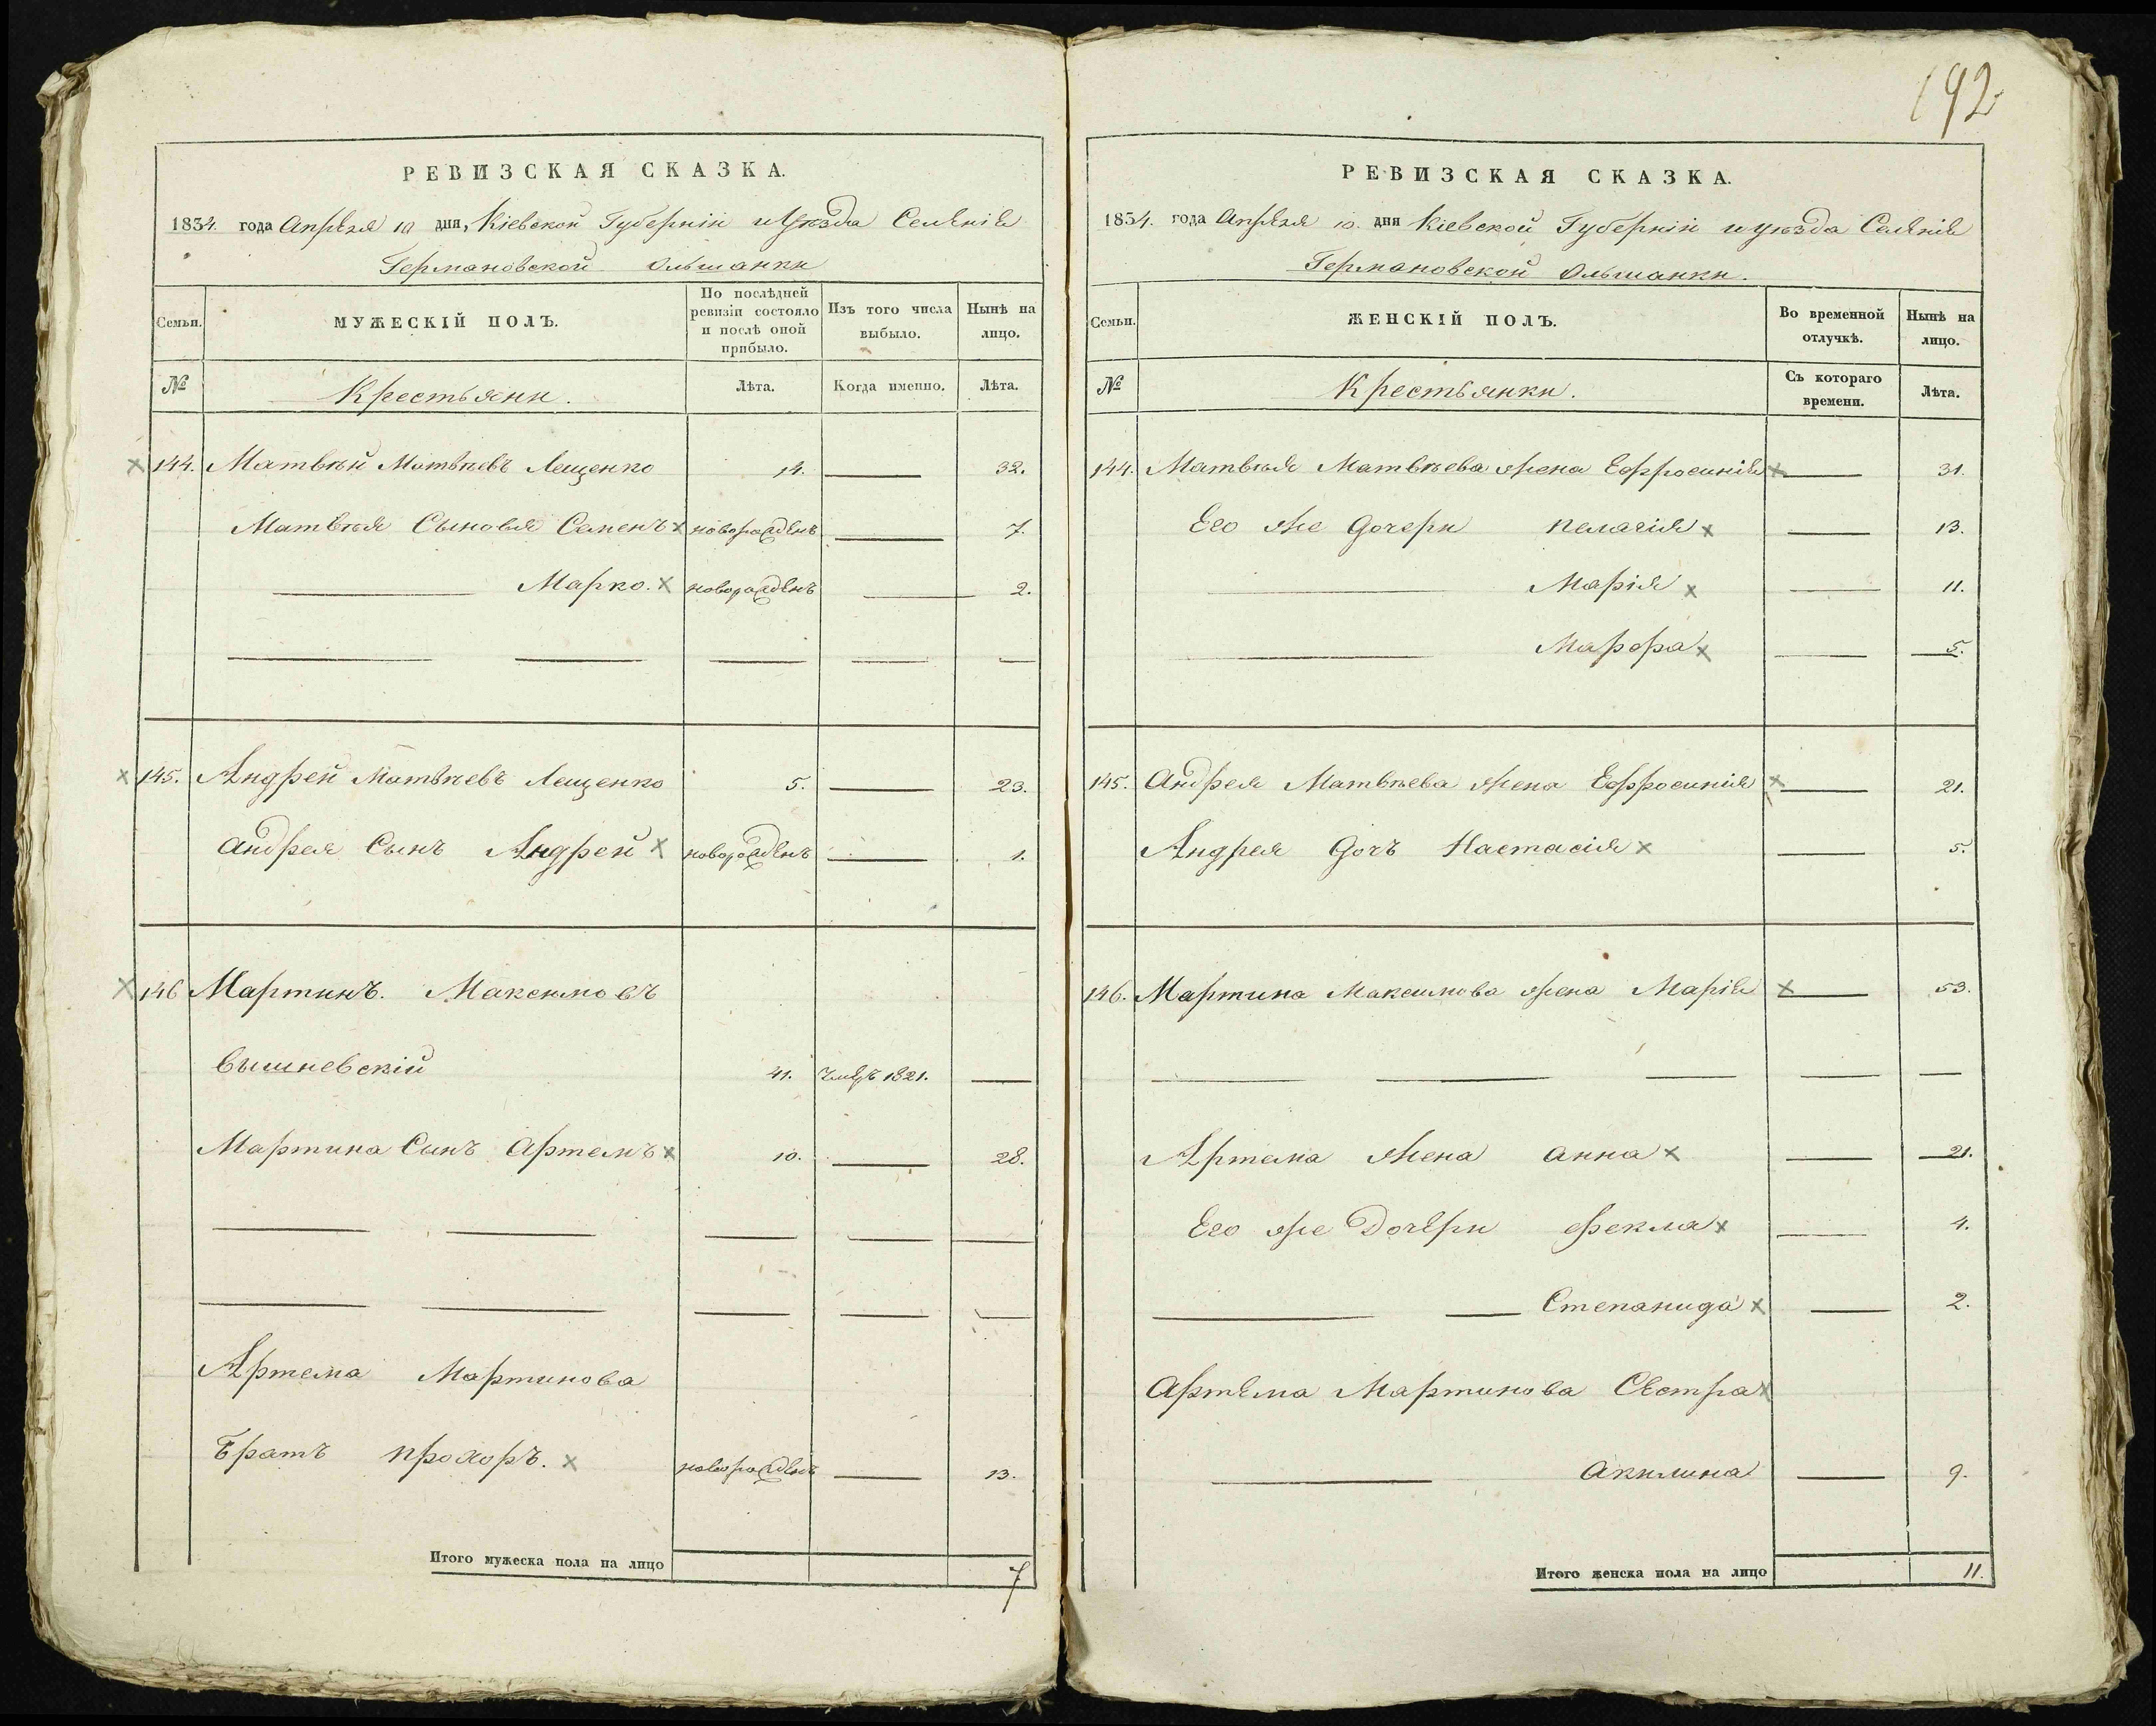 192
РЕВИЗСКАЯ СКАЗКА.
1834. года Апреля 10 дня, Кіевской Губерніи и Уѣзда Селенія
Германовской Ольшанки
Семьи.
МУЖЕСКІЙ ПОЛЪ.
По послѣдней ревизіи состояло и послѣ оной прибыло.
Изъ того числа выбыло.
Нынѣ на лицо.
№
Крестьяни.
Лѣта.
Когда именно.
Лѣта.
144. Матвѣй Матвѣевъ Лещенко 14. 32.
Матвѣя Сыновья Семенъ новорожденъ 7.
Марко. новорожденъ 2.
145. Андрей Матвѣевъ Лещенко 5. 23.
Андрея Сынъ Андрей новорожденъ 1.
146 Мартинъ. Максимовъ
Вышневскій 41. Умеръ 1821.
Мартина Сынъ Артемъ 10. 28.
Артема Мартинова
Братъ Прохоръ. новорожденъ 13.
Итого мужеска пола на лицо 7
РЕВИЗСКАЯ СКАЗКА.
1834. года Апреля 10. дня Кіевской Губерніи и уѣзда Селенія
Германовской Ольшанки.
Семьи.
ЖЕНСКІЙ ПОЛЪ.
Во временной отлучкѣ.
Нынѣ на лицо.
№
Крестьянки.
Съ котораго времени.
Лѣта.
144. Матвѣя Матвѣева жена Ефросинія 31.
Его же Дочери Пелагія 13.
Марія 11.
Марфа 5.
145. Андрея Матвѣева жена Ефросинія 21.
Андрея Дочь Настасія 5.
146. Мартина Максимова жена Марія 53.
Артема жена Анна 21.
Его же Дочери Фекла 4.
Степанида 2.
Артема Мартинова Сестра
Акилина 9.
Итого женска пола на лицо 11.